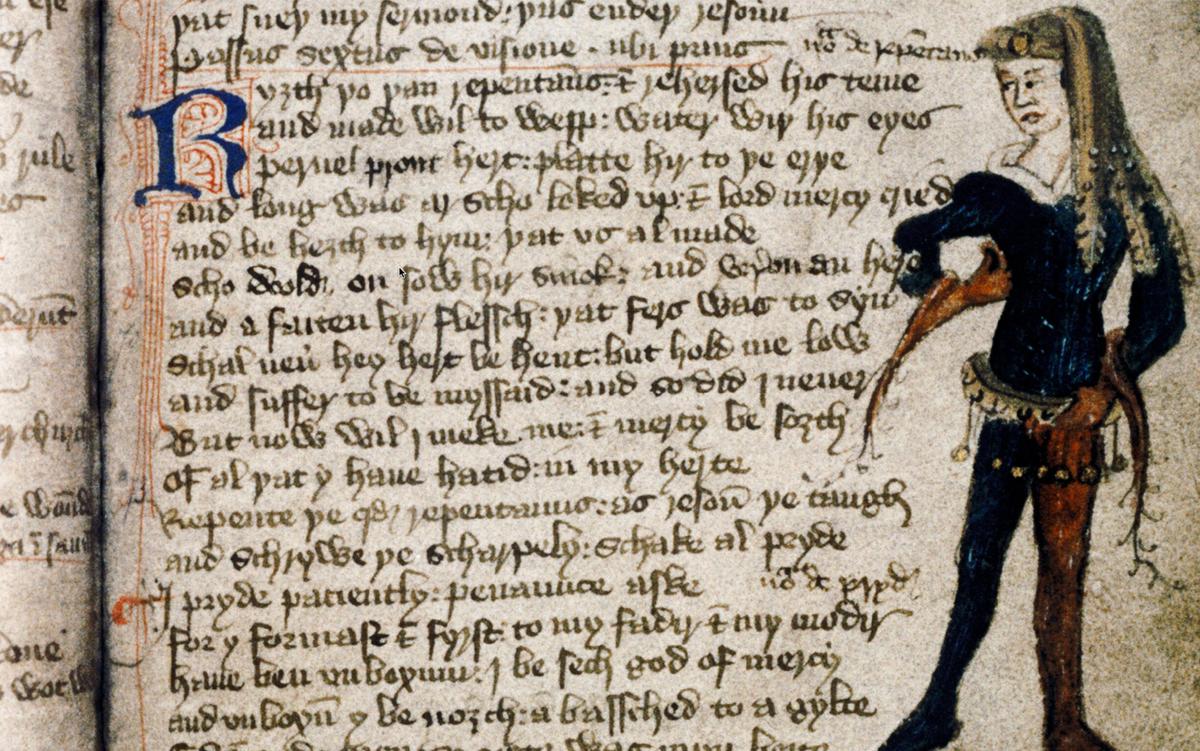 þat suey my sermond: þus endeþ resoun
Passus sextus de visione . ubi prius nota de repentans
Ryȝth þo ran repentans: & rehersed his teme
and made wil to wepp: water wiþ his eyes
pernel pront hert: platte hir to þe erþe
and long was ar scho loked vp: & lord mercy cried
and be heȝth to hym: þat vs al made
Scho wold on sow hir smok: and an here
and a faiten hir flessch: þat fers was to syn
Schal neuer hey hert be hent: but hold me low
and suffer to be myssaid: and so did I neuer
But now wil I meke me: & mercy be
Of al þat y haue hatid: in my herte
Repente þe qd repentanus: as resoun þe taugh
and schrywe þe scharpely: schake al pryde
I pryde paciently: penaunce aske nota de pryd
for y formast & fyrst: to my fadir & my modir
haue ben vnboxum: I be sech god of mercy
and vnboxum y be noȝth: a bassched to a gylte